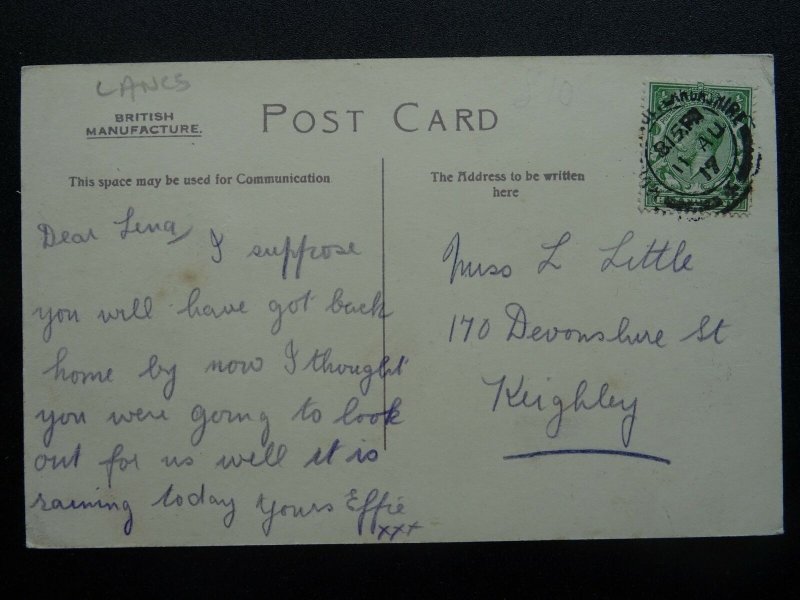 LANCS
BRITISH
MANUFACTURE.
POST CARD
This space may be used for Communication
The Address to be written
here
Dear Lena, I suppose
you will have got back
home by now I thought
you were going to look
out for us well it is
raining today Yours Effie
xxx
Miss L Little
170 Devonshire St
Keighley
8.15 PM
11 AU
17